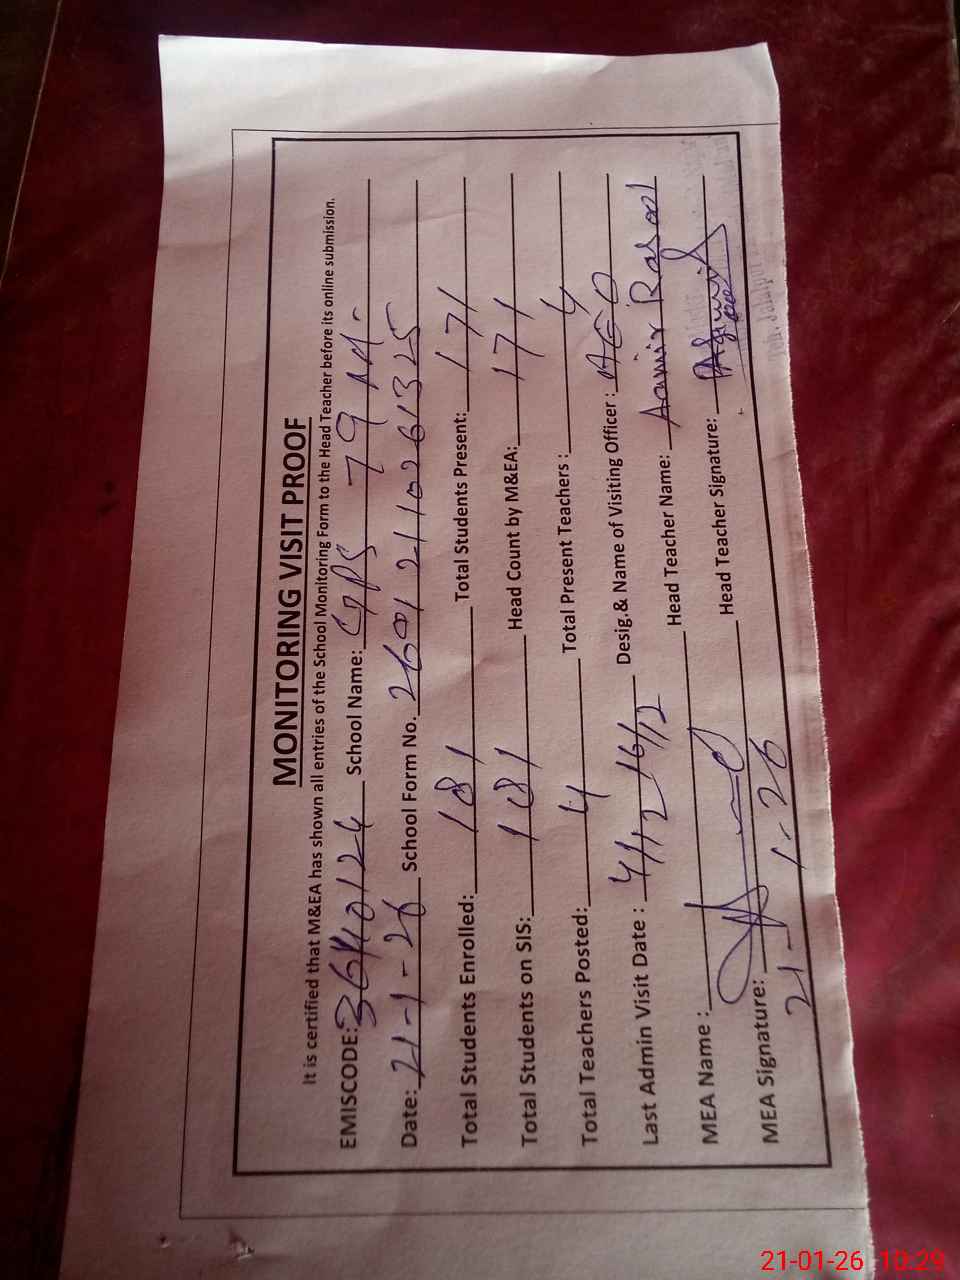 MONITORING VISIT PROOF
It is certified that M&EA has shown all entries of the School Monitoring Form to the Head Teacher before its online submission.
EMISCODE: School Name: GPS 79 M.
Date: 21-1-26 School Form No.
Total Students Enrolled: 181 Total Students Present: 171
Total Students on SIS: 181 Head Count by M&EA: 171
Total Teachers Posted: 4 Total Present Teachers : 4
Last Admin Visit Date : 4/12 16/12 Desig.& Name of Visiting Officer : AEO
MEA Name : Head Teacher Name: Aamir Rasool
MEA Signature: Head Teacher Signature:
21-1-26
Teh. Jalalpur
21-01-26 10:29